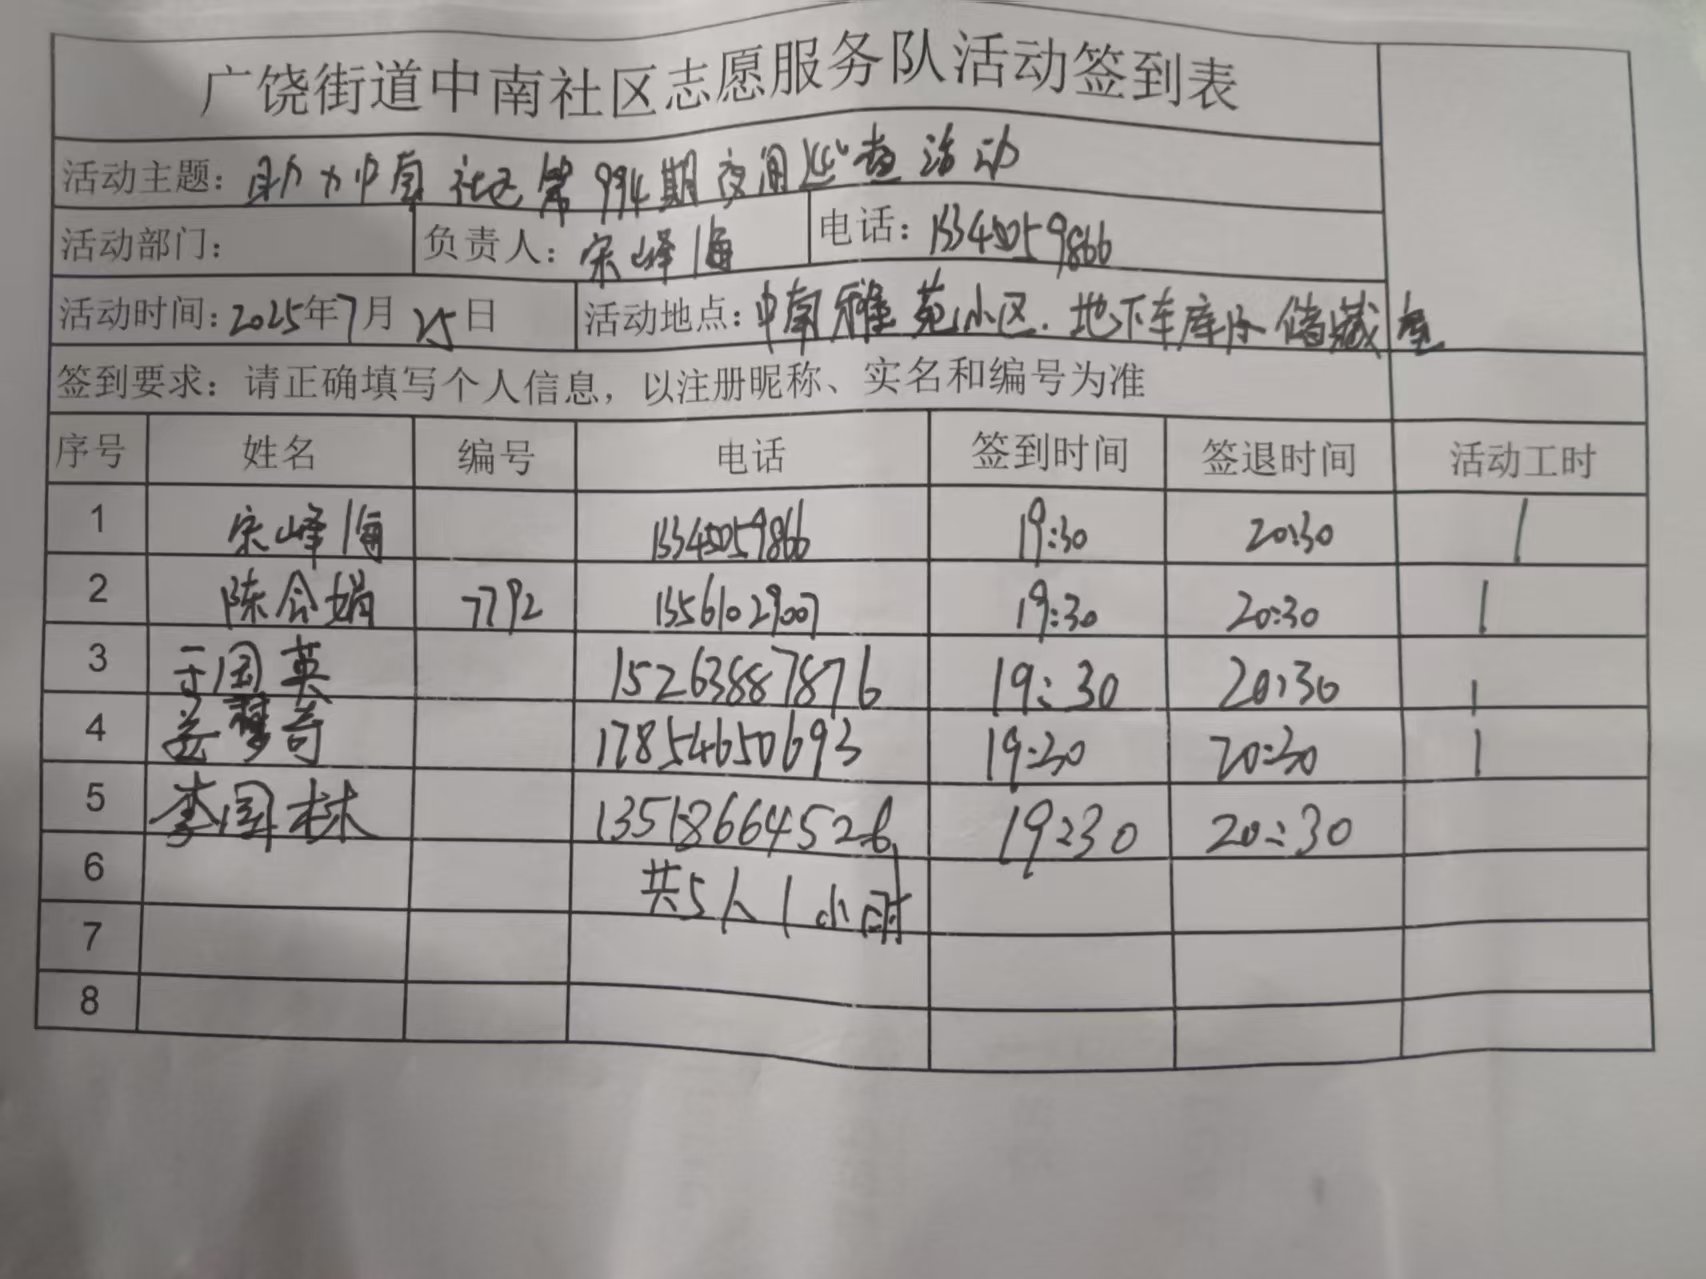 广饶街道中南社区志愿服务队活动签到表
活动主题：助力中南社区第994期夜间巡查活动
活动部门： 负责人：宋峰海 电话：13345059866
活动时间：2025年7月25日 活动地点：中南雅苑小区.地下车库及储藏室
签到要求：请正确填写个人信息，以注册昵称、实名和编号为准
序号 姓名 编号 电话 签到时间 签退时间 活动工时
1 宋峰海 13345059866 19:30 20:30 1
2 陈会娟 7792 13561029007 19:30 20:30 1
3 于国英 15263887876 19:30 20:30 1
4 梦奇 17854650693 19:30 20:30 1
5 李国林 13518664526 19:30 20:30
6 共5人1小时
7
8